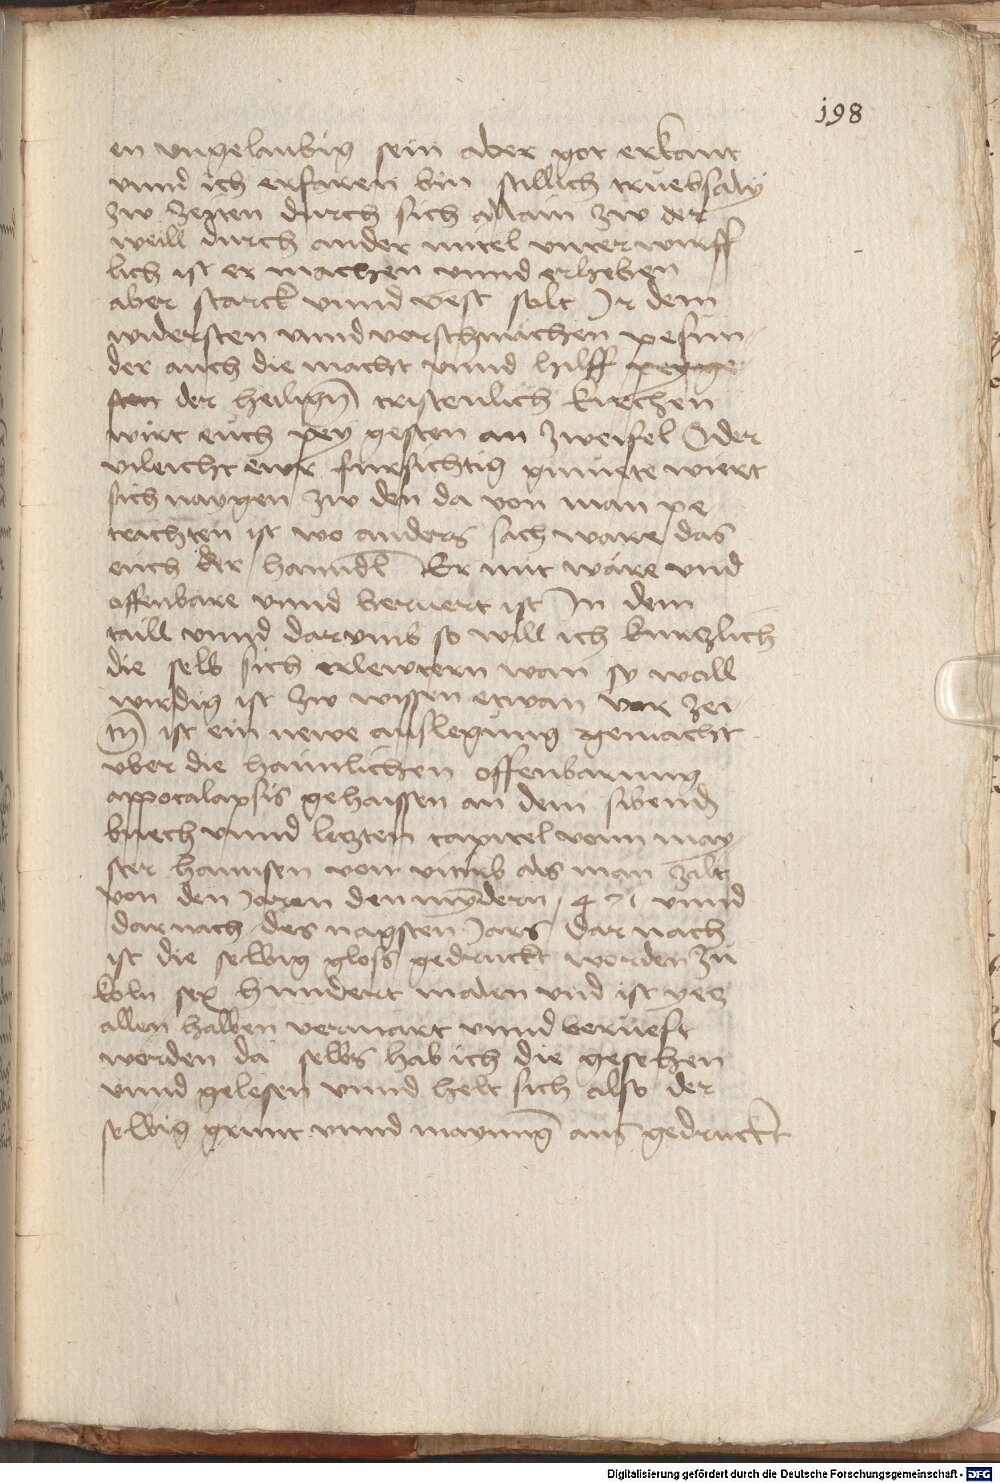 198
en vngelaubig sein aber got erkant
vnnd ich erfaren bin sollich truebsaly
zw zeiten durch sich allain zw der
weill durch ander mitel vnter wirff
lich ist er machen vnnd erheben
aber starck vnnd vest solt Ir dem
widersten vnnd vorschmächen pesun
der auch die macht vnnd hilff
der heilign cristenlich kirchen
wirt euch pey gesten an zweifel Oder
vileicht ewr fursichtig gmuete wiert
sich naygen zw den da von man pe
trachten ist wo anders sach ware das
euch der hanndl Er mit wäre vnd
offenbare vnnd beruert ist In dem
taill vnnd darvmb so will ich kurczlich
die selb sich erlewtern wan sy woll
wirdig ist zw wissen etwan vor zei
tn ist ein newe auslegung gemacht
vber die haimlichen offenbarung
appocalapsis gehaissen an dem sibend
buech vnnd leczten capitel vonn may
ster hannsen von viterb als man zalt
von den Jaren den myndern 471 vnnd
darnach des nagsten Jars dar nach
ist die selbig gloss gedruckt worden zu
koln sex hundert malen vnd ist yecz
allen halben vermärt vnnd berueft
worden da selbs hab ich die gesehen
vnnd gelesen vnnd helt sich also der
selbig grunt vnnd maynung aus gedruckt
Digitalisierung gefördert durch die Deutsche Forschungsgemeinschaft - DFG